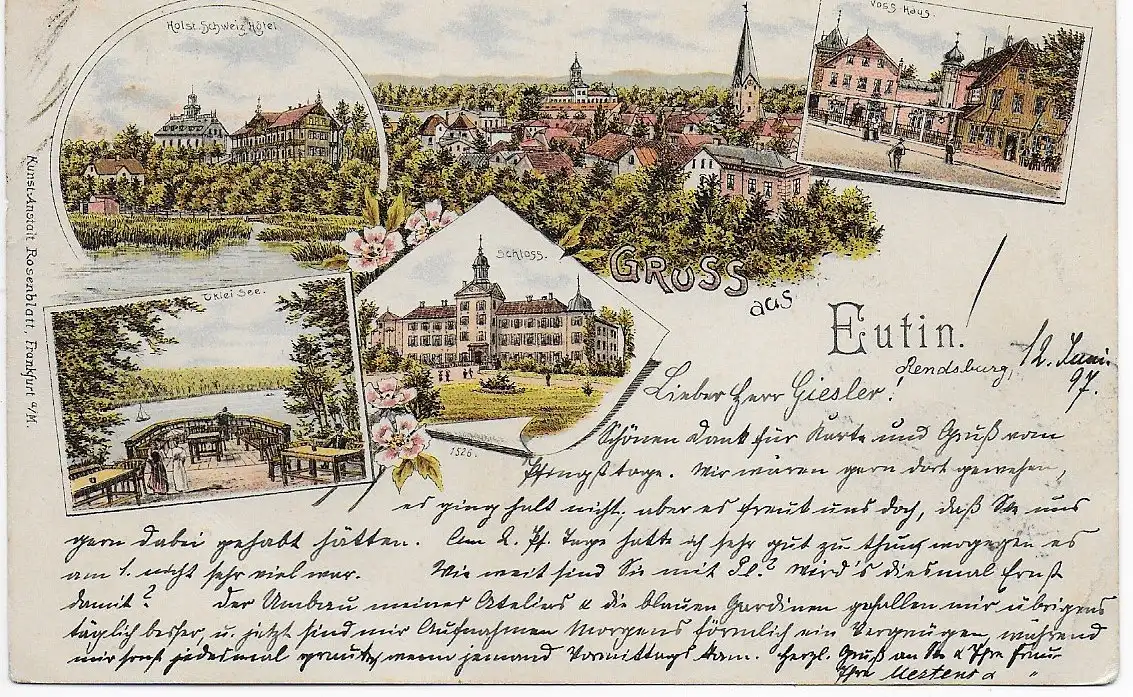 Holst. Schweiz Hôtel
Voss Haus.
Kunst-Anstalt Rosenblatt, Frankfurt a/M.
Uklei See.
Schloss.
1526.
Gruss
aus
Eutin!
Rendsburg, 12. Juni.
97.
Lieber Herr Giesler!
Schönen Dank für Karte und Gruß vom
Pfingsttage. Wir wären gern dort gewesen,
es ging halt nicht, aber es freut uns doch, daß Sie uns
gern dabei gehabt hätten. Am 2. Pf. Tage hatte ich sehr gut zu thun, wogegen es
am 1. nicht sehr viel war. Wie weit sind Sie mit Pl.? wird's diesmal Ernst
damit? Der Umbau meines Ateliers & die blauen Gardinen gefallen mir übrigens
täglich besser, u. jetzt sind mir Aufnahmen Morgens förmlich ein Vergnügen, während
mir sonst jedesmal graute, wenn jemand Vormittags kam. Herzl. Gruß an Sie & Ihre Frau
Ihre